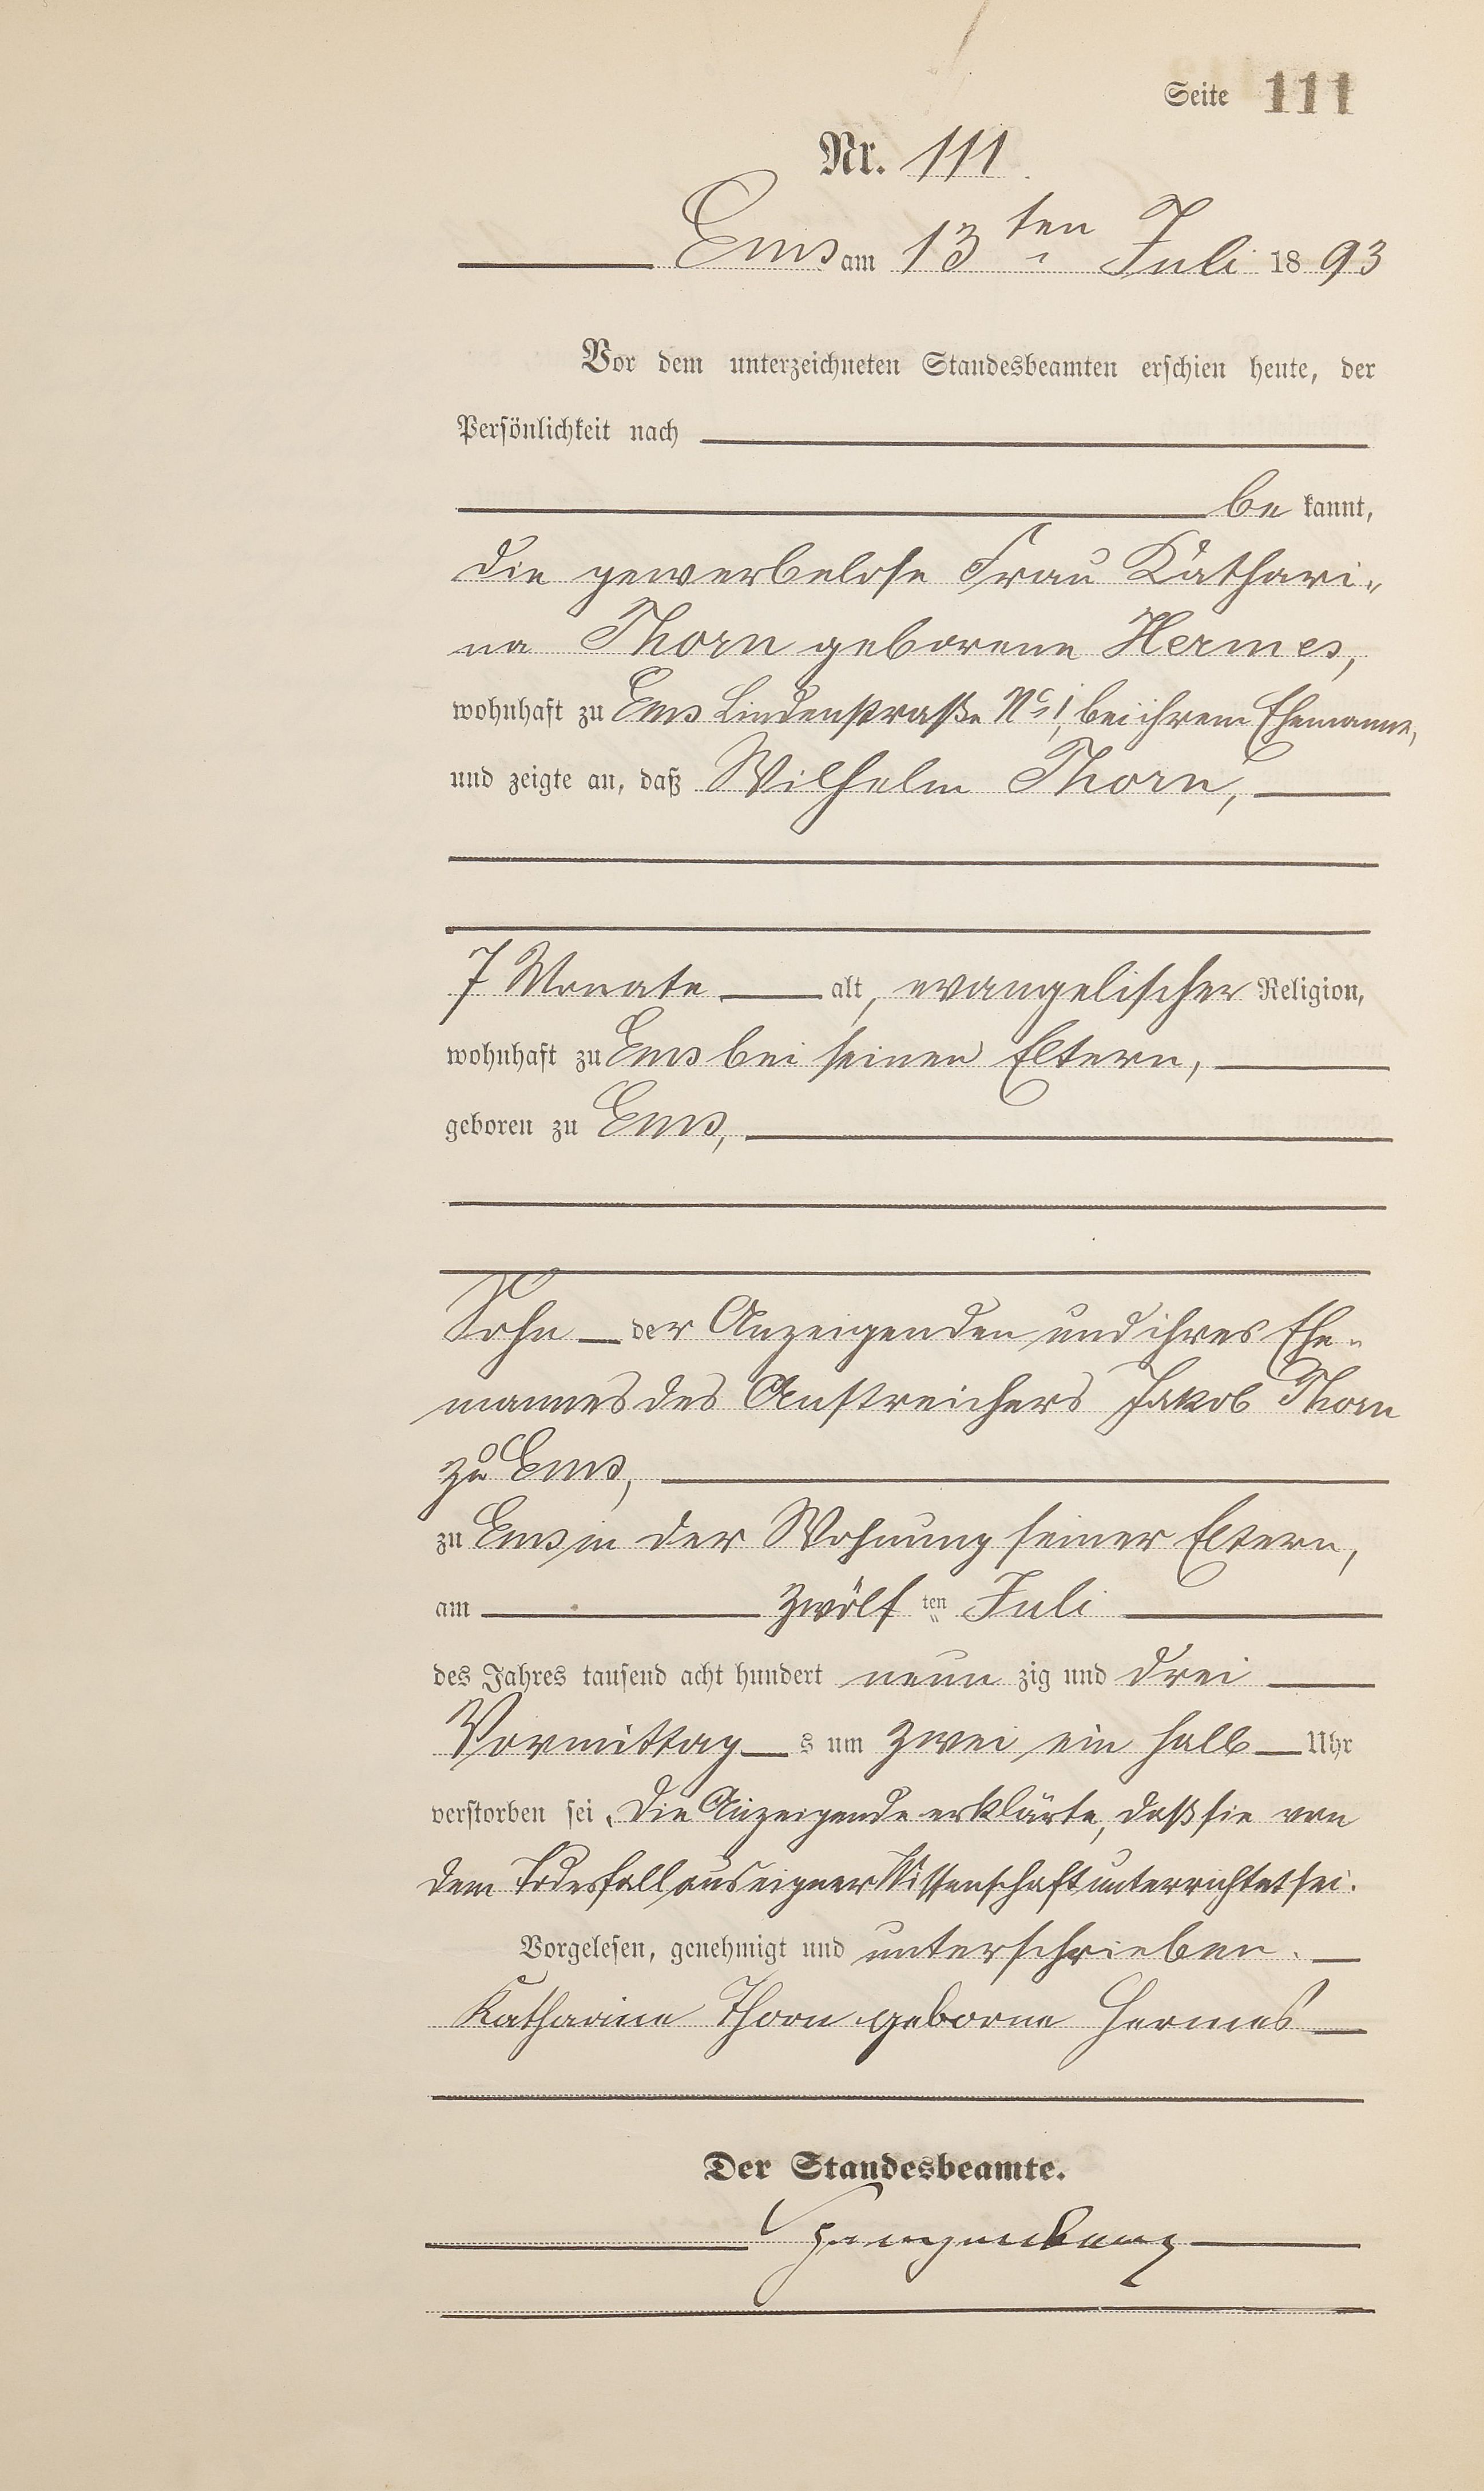 Seite 111
Nr. 111.
Ems am 13ten Juli 1893
Vor dem unterzeichneten Standesbeamten erschien heute, der
Persönlichkeit nach
be kannt,
die gewerbelose Frau Kathari-
na Thorn geborene Hermes,
wohnhaft zu Ems Lindenstraße No 1, bei ihrem Ehemanne,
und zeigte an, daß Wilhelm Thorn,
7 Monate alt, evangelischer Religion,
wohnhaft zu Ems bei seinen Eltern,
geboren zu Ems,
Sohn der Anzeigenden und ihres Ehe-
mannes des Anstreichers Jakob Thorn
zu Ems,
zu Ems in der Wohnung seiner Eltern,
am zwölf ten Juli
des Jahres tausend acht hundert neun zig und drei
Vormittag s um zwei ein halb Uhr
verstorben sei. Die Anzeigende erklärte, daß sie von
dem Todesfall aus eigner Wissenschaft unterrichtet sei.
Vorgelesen, genehmigt und unterschrieben.
Katharine Thorn geborne Hermes
Der Standesbeamte.